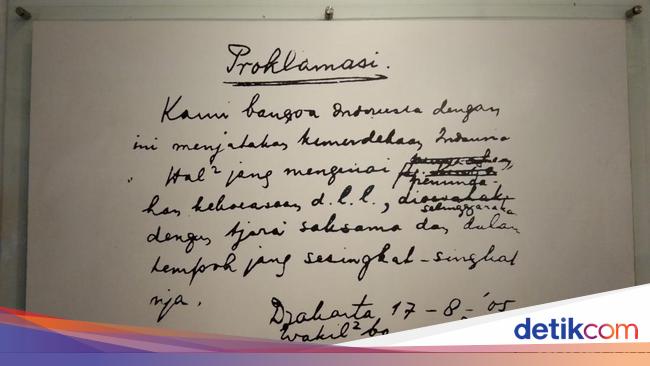 Proklamasi.
Kami bangsa Indonesia dengan
ini menjatakan kemerdekaan Indonesia
Hal² jang mengenai
peminda-
han kekoeasaan d.l.l.,
diselenggarakan
dengan tjara saksama dan dalam
tempoh jang sesingkat-singkat
nja.
Djakarta 17 - 8 - '05
Wakil² ba
detikcom